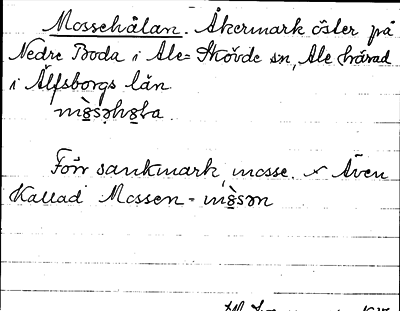 Mossehålan. Åkermark öster på
Nedre Boda i Ale-Skövde sn, Ale härad
i Älfsborgs län
mòsəhola.
Förr sankmark, mosse. Även
Kallad Mossen - mòsən